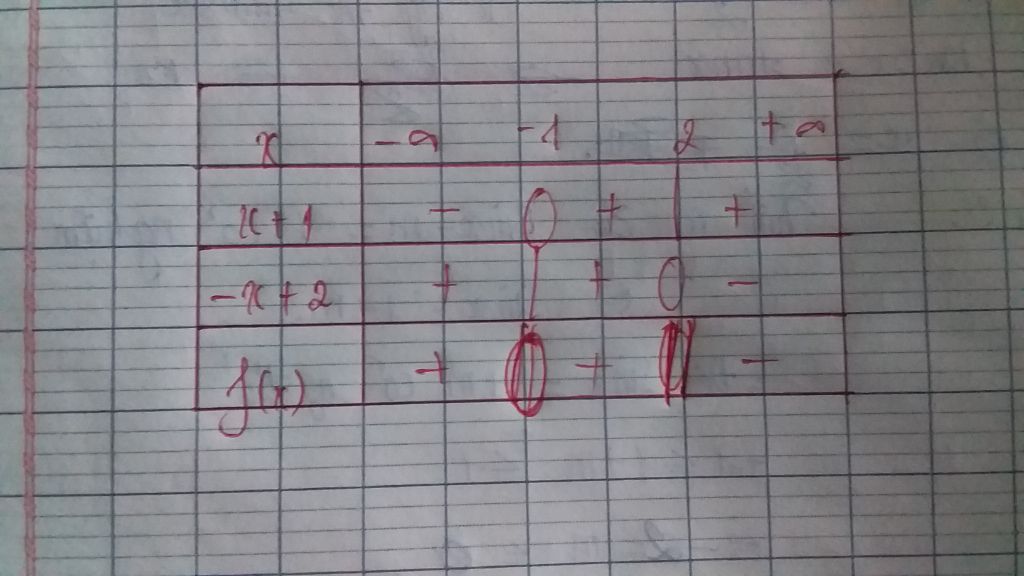 x -∞ -1 2 +∞
x+1 - 0 + | +
-x+2 + | + 0 -
f(x) + 0 + || -